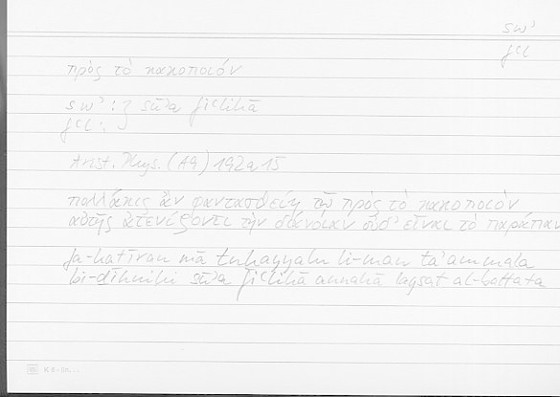 sw'
fʿl
πρὸς τὸ κακοποιόν
sw' : } sūʾa fiʿlihā
fʿl : }
Arist. Phys. (A9) 192a15
πολλάκις ἂν φαντασθείη τῷ πρὸς τὸ κακοποιὸν
αὐτῆς ἀτενίζοντι τὴν διάνοιαν οὐδ' εἶναι τὸ παράπαν
fa-kaṯīran mā tuḫayyalu li-man ta'ammala
bi-ḏihnihī sūʾa fiʿlihā annahā laysat al-battata